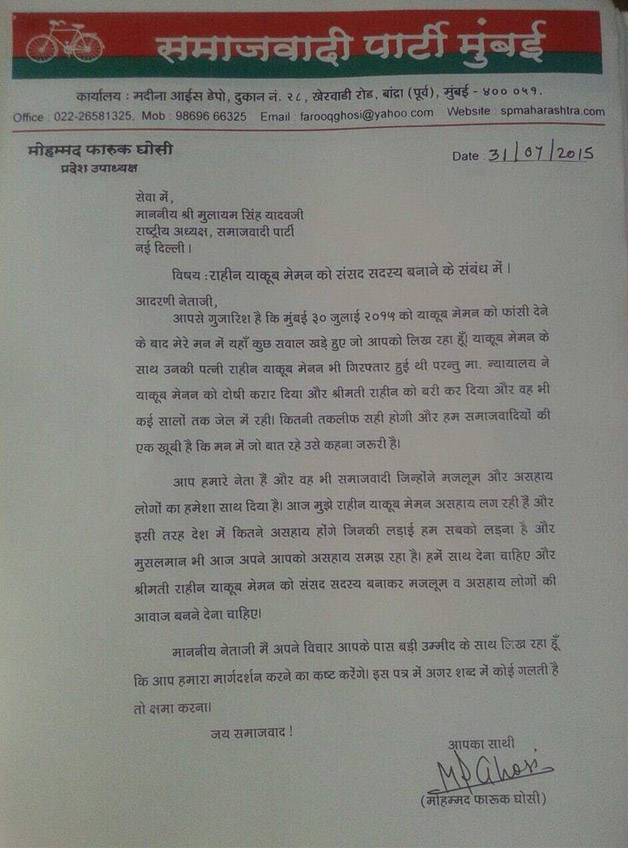 समाजवादी पार्टी मुंबई
कार्यालय : मदीना आईस डेपो, दुकान नं. २८, खेरवाडी रोड, बांद्रा (पूर्व), मुंबई - ४०० ०५१.
Office : 022-26581325, Mob : 98696 66325 Email : farooqghosi@yahoo.com Website : spmaharashtra.com
मोहम्मद फारुक घोसी
प्रदेश उपाध्यक्ष
Date : 31/07/2015
सेवा में,
माननीय श्री मुलायम सिंह यादवजी
राष्ट्रीय अध्यक्ष, समाजवादी पार्टी
नई दिल्ली ।
विषय : राहीन याकूब मेमन को संसद सदस्य बनाने के संबंध में ।
आदरणी नेताजी,
आपसे गुजारिश है कि मुंबई ३० जुलाई २०१५ को याकूब मेमन को फांसी देने
के बाद मेरे मन में यहाँ कुछ सवाल खड़े हुए जो आपको लिख रहा हूँ। याकूब मेमन के
साथ उनकी पत्नी राहीन याकूब मेनन भी गिरफ्तार हुई थी परन्तु मा. न्यायालय ने
याकूब मेनन को दोषी करार दिया और श्रीमती राहीन को बरी कर दिया और वह भी
कई सालों तक जेल में रही। कितनी तकलीफ सही होगी और हम समाजवादियों की
एक खूबी है कि मन में जो बात रहे उसे कहना जरूरी है।
आप हमारे नेता हैं और वह भी समाजवादी जिन्होंने मजलूम और असहाय
लोगों का हमेशा साथ दिया है। आज मुझे राहीन याकूब मेमन असहाय लग रही है और
इसी तरह देश में कितने असहाय होंगे जिनकी लड़ाई हम सबको लड़ना है और
मुसलमान भी आज अपने आपको असहाय समझ रहा है। हमें साथ देना चाहिए और
श्रीमती राहीन याकूब मेमन को संसद सदस्य बनाकर मजलूम व असहाय लोगों की
आवाज बनने देना चाहिए।
माननीय नेताजी मैं अपने विचार आपके पास बड़ी उम्मीद के साथ लिख रहा हूँ
कि आप हमारा मार्गदर्शन करने का कष्ट करेंगे। इस पत्र में अगर शब्द में कोई गलती है
तो क्षमा करना।
जय समाजवाद !
आपका साथी
MFGhosi
(मोहम्मद फारूक घोसी)